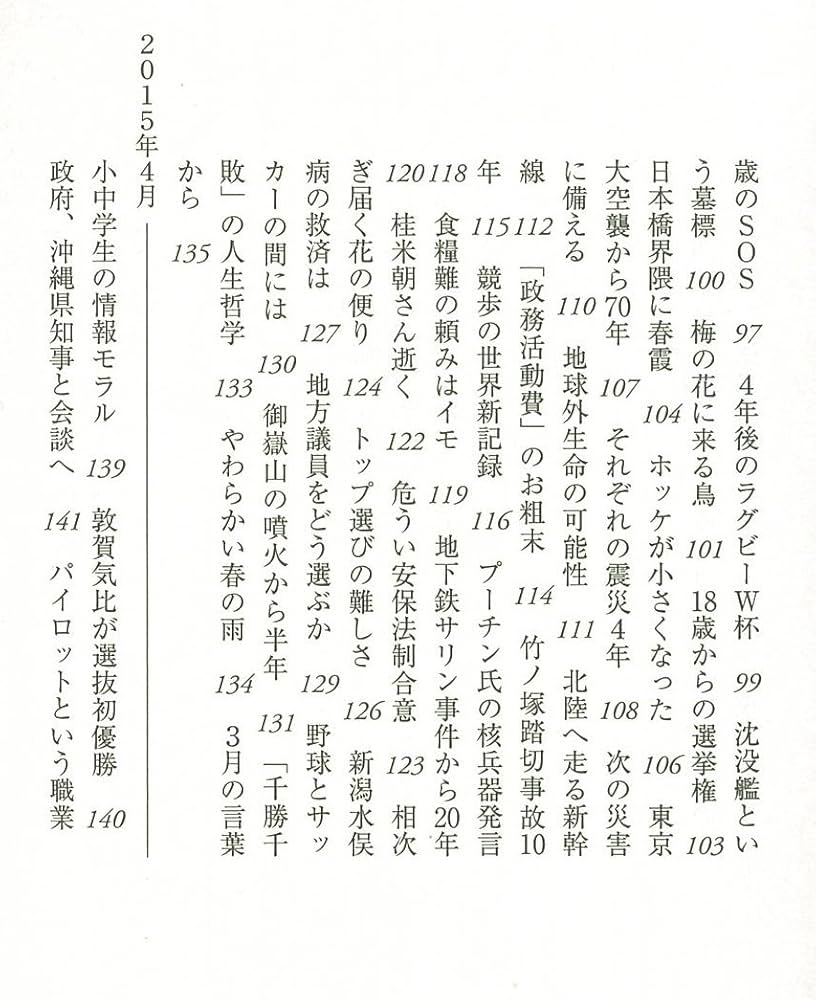 歳のSOS 97 4年後のラグビーW杯 99 沈没艦とい
う墓標 100 梅の花に来る鳥 101 18歳からの選挙権 103
日本橋界隈に春霞 104 ホッケが小さくなった 106 東京
大空襲から70年 107 それぞれの震災4年 108 次の災害
に備える 110 地球外生命の可能性 111 北陸へ走る新幹
線 112 「政務活動費」のお粗末 114 竹ノ塚踏切事故10
年 115 競歩の世界新記録 116 プーチン氏の核兵器発言
118 食糧難の頼みはイモ 119 地下鉄サリン事件から20年
120 桂米朝さん逝く 122 危うい安保法制合意 123 相次
ぎ届く花の便り 124 トップ選びの難しさ 126 新潟水俣
病の救済は 127 地方議員をどう選ぶか 129 野球とサッ
カーの間には 130 御嶽山の噴火から半年 131 「千勝千
敗」の人生哲学 133 やわらかい春の雨 134 3月の言葉
から 135
2015年4月
小中学生の情報モラル 139 敦賀気比が選抜初優勝 140
政府、沖縄県知事と会談へ 141 パイロットという職業